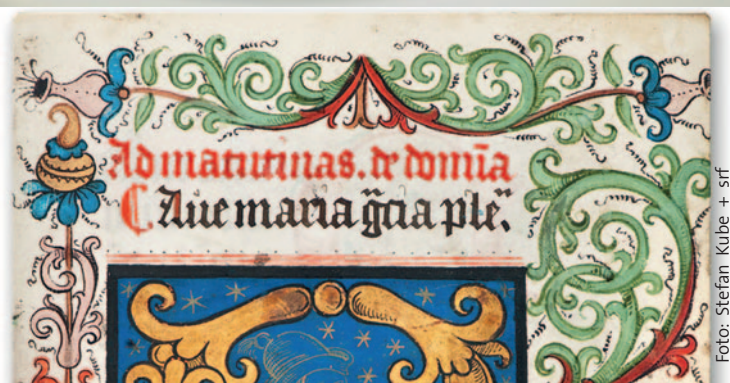 Ad matutinas. de domīa
C Aue maria gr̄a plē.
Foto: Stefan Kube + srf